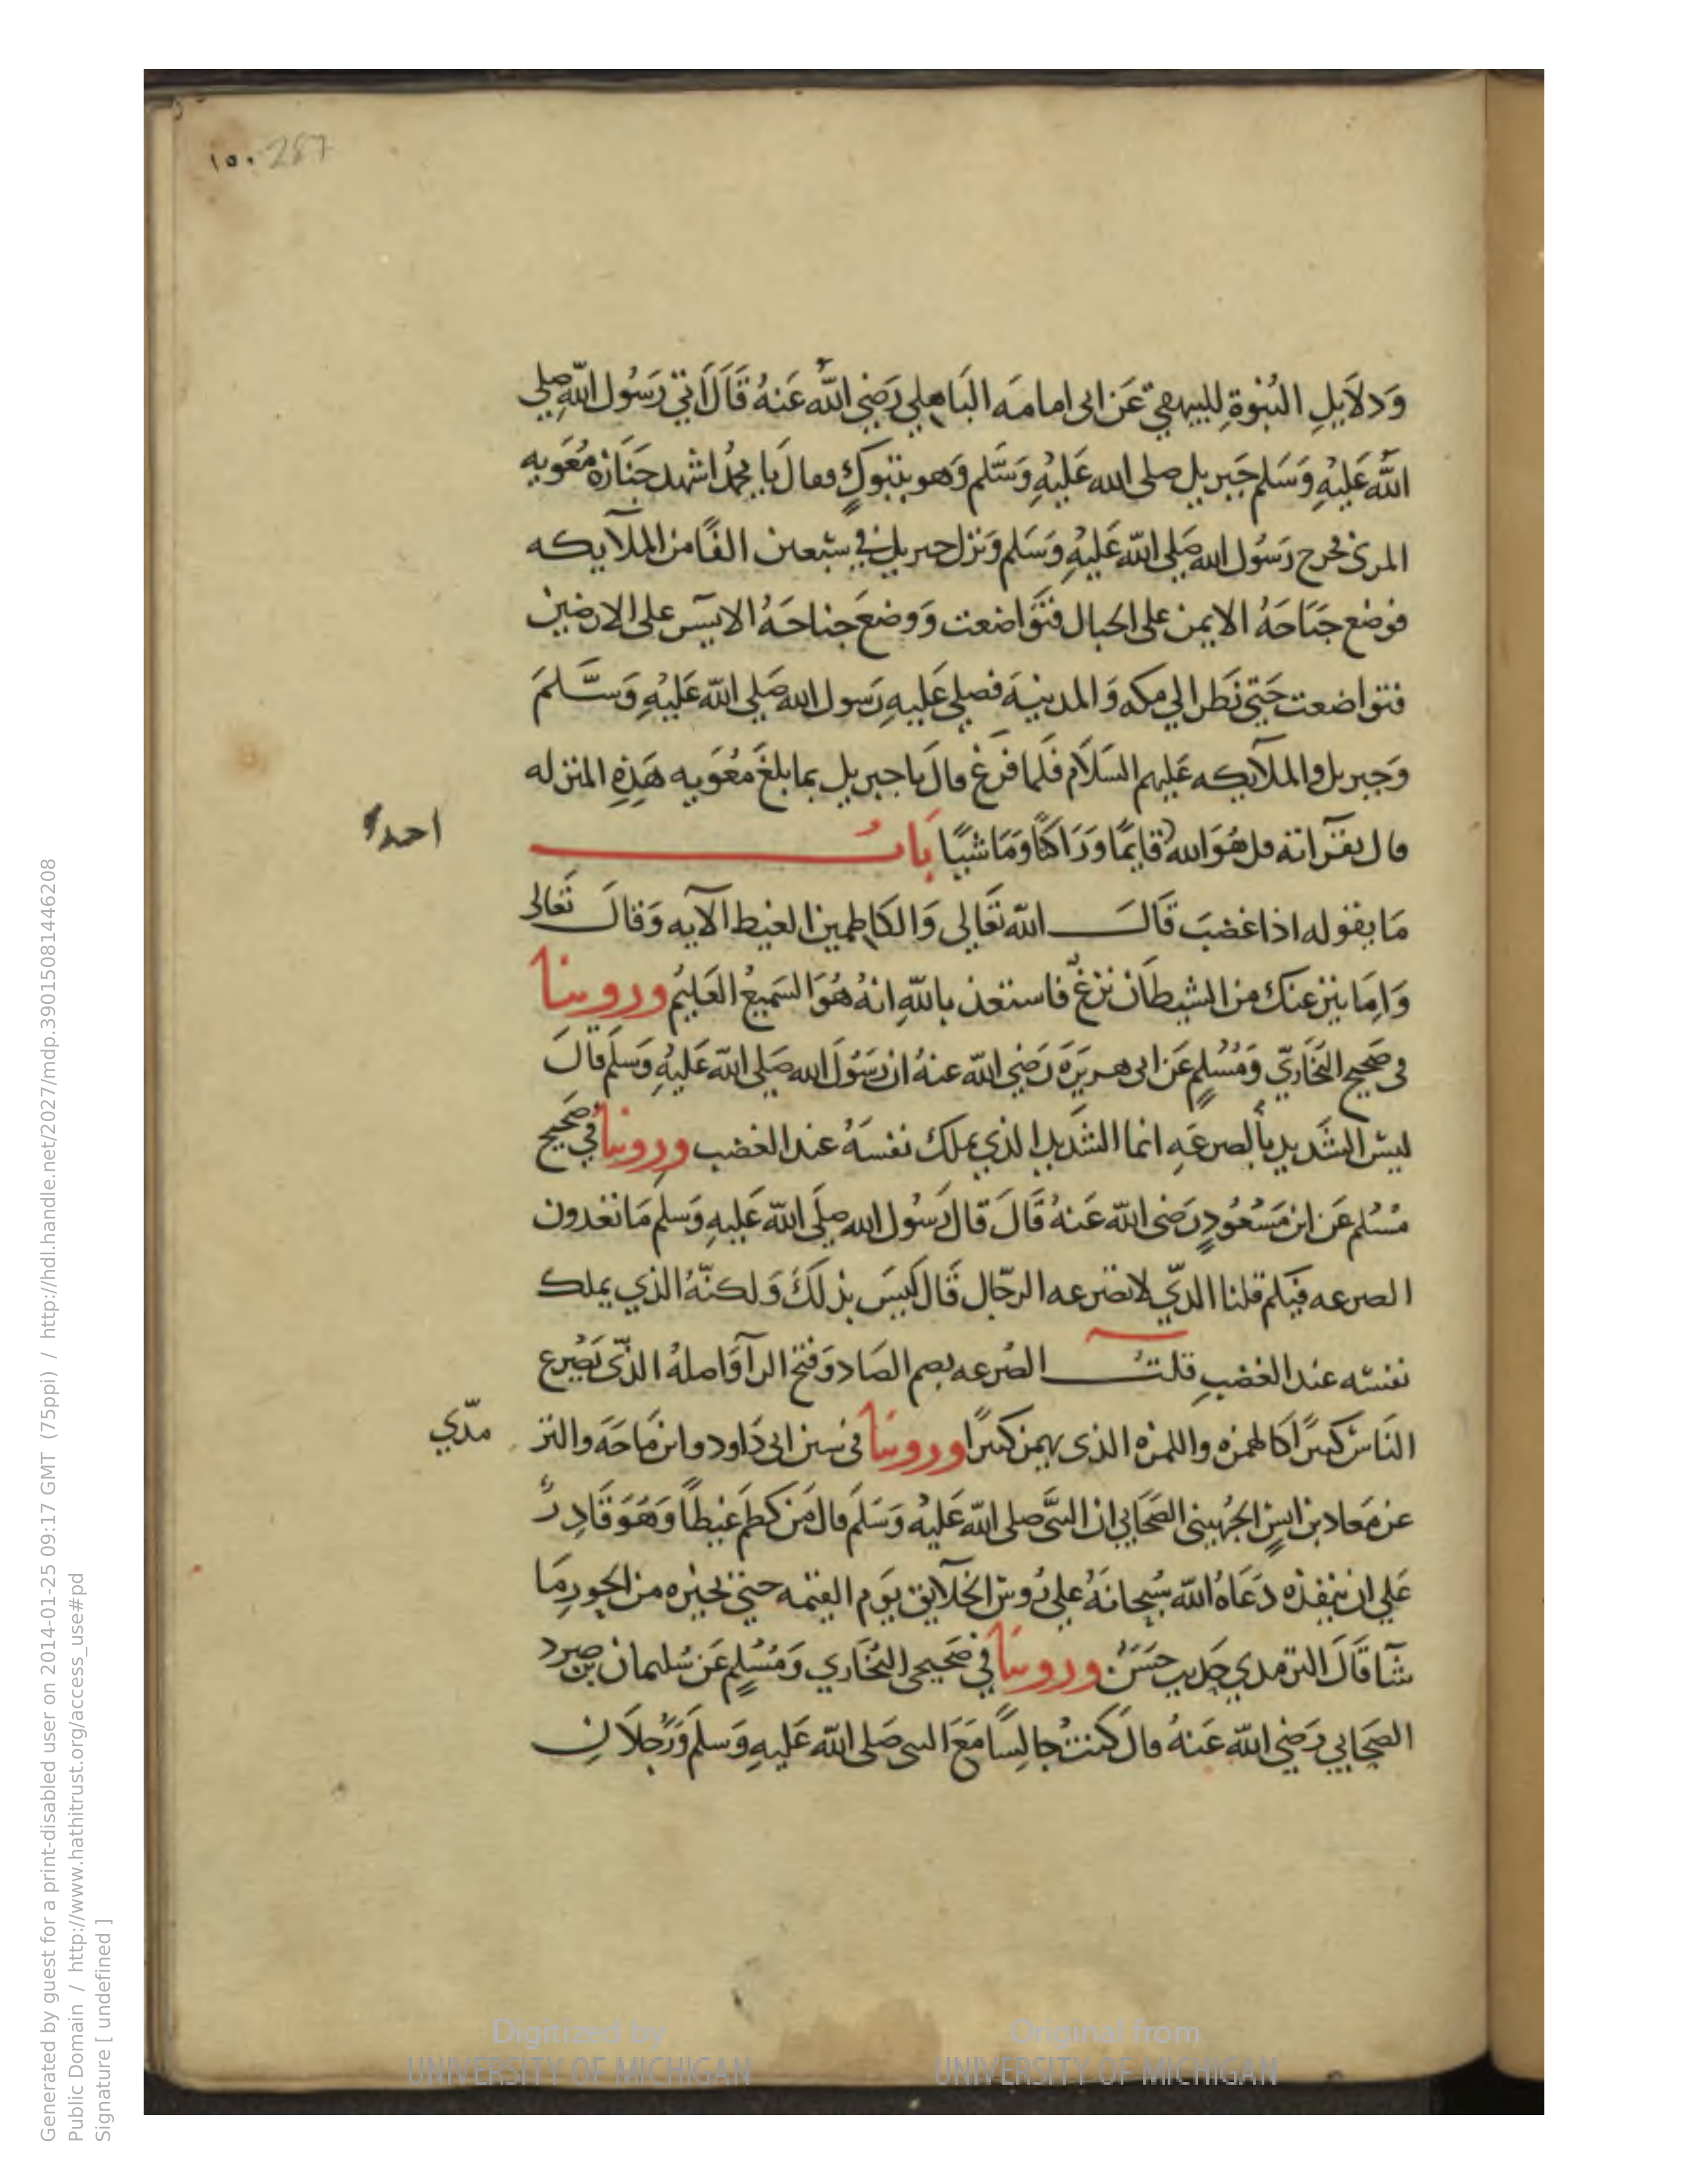 ١٥٠ 287
وَدلَايلِ النُبُوةِ للبيهقي عَن ابى امامَه البَاهلي رَضِي الله عَنهُ قَالَ اَتي رَسُول اللهِ صلى
الله عَليْهِ وَسَلم جَبريل صلى الله عَليْهِ وَسَّلم وَهو بتبوكٍ فقالَ يا محمدُ اشهد جَنَازة مُعَويه
المزني فخرج رَسُول الله صَلى الله عَليْهِ وَسَلم وَنزل جبريل في سَبعين الفًا من الملآيكه
فوضع جَنَاحَهُ الايمن على الجبال فتَوَاضعت وَوضعَ جناحَهُ الايسَر على الارضين
فتواضعت حَتي نَظر الي مكه وَالمدينَة فصلى عَليهِ رَسول الله صَلى الله عَليْهِ وَسَّلمَ
وَجبريل والملآيكه عَليهم السَلَام فَلما فَرغ قال يا جبريل بما بلغَ مُعَويه هَذِهِ المنزله
قال بقرآته قل هُوَ الله قايمًا وَرَاكبًا وَمَاشيًا بَابُ
احد
مَا يقوله اذا غضبَ قَالَ الله تعَالى وَالكاظمين الغيظ الآيه وَقالَ تَعَالى
وَاِمَا ينزعنك من الشيطَان نزغٌ فاستعذ باللهِ انهُ هُوَ السَميعُ العَليُم وروينا
فى صَحيح البخَاريّ وَمُسْلمٍ عَن ابى هريرَةَ رَضِي الله عنهُ ان رَسُولَ الله صَلى الله عَليْهِ وَسلَم قالَ
ليسَ الشَديد بالصرعَهِ انما الشَديد الذي يملك نفسَهُ عند الغضب وروينا في صَحيح
مُسْلم عَن ابن مَسْعُودٍ رَضى الله عَنهُ قَالَ قالَ رَسُول الله صلَى الله عَليهِ وَسلم مَا تعُدون
الصرعه فيكم قلنا الذّي لا تصرعه الرجّال قَال لَيسَ بذلَكَ وَلكنّهُ الذي يملك
نفسَه عند الغضبِ قلتُ الصُرعه بضم الصَاد وَفتح الرآ وَاصلهُ الذّى يَصْرع
النَاسَ كثيرًا كالهمزه واللمزه الذى يهمز كثيرًا وروينَا فى سنن ابى دَاود وابن مَاجَه والتر
مدّي
عن مَعاد بن انسٍ الجُهيني الصَحَابي ان النبَّى صلى الله عَليْه وَسَلَم قالَ مَن كظَم غَيظاً وَهُوَ قَادِرٌ
عَلي ان ينفذه دَعَاهُ الله سُبحانَهُ علي رُوسَ الخلآيق يَوم القيمه حتي يخيره من الحورِ مَا
شَآ قَالَ الترمدي حَديث حسَنٌ وروينَا في صَحيحى البُخَاري وَمُسْلمٍ عَن سُليمان بن صرد
الصَحَابي رَضي الله عَنهُ قالَ كنتُ جالِسًا مَعَ النبى صَلى الله عَليهِ وَسلَم وَرَجُلَانِ
Digitized by
UNIVERSITY OF MICHIGAN
Original from
UNIVERSITY OF MICHIGAN
Generated by guest for a print-disabled user on 2014-01-25 09:17 GMT (75ppi) / http://hdl.handle.net/2027/mdp.39015081446208
Public Domain / http://www.hathitrust.org/access_use#pd
Signature [ undefined ]